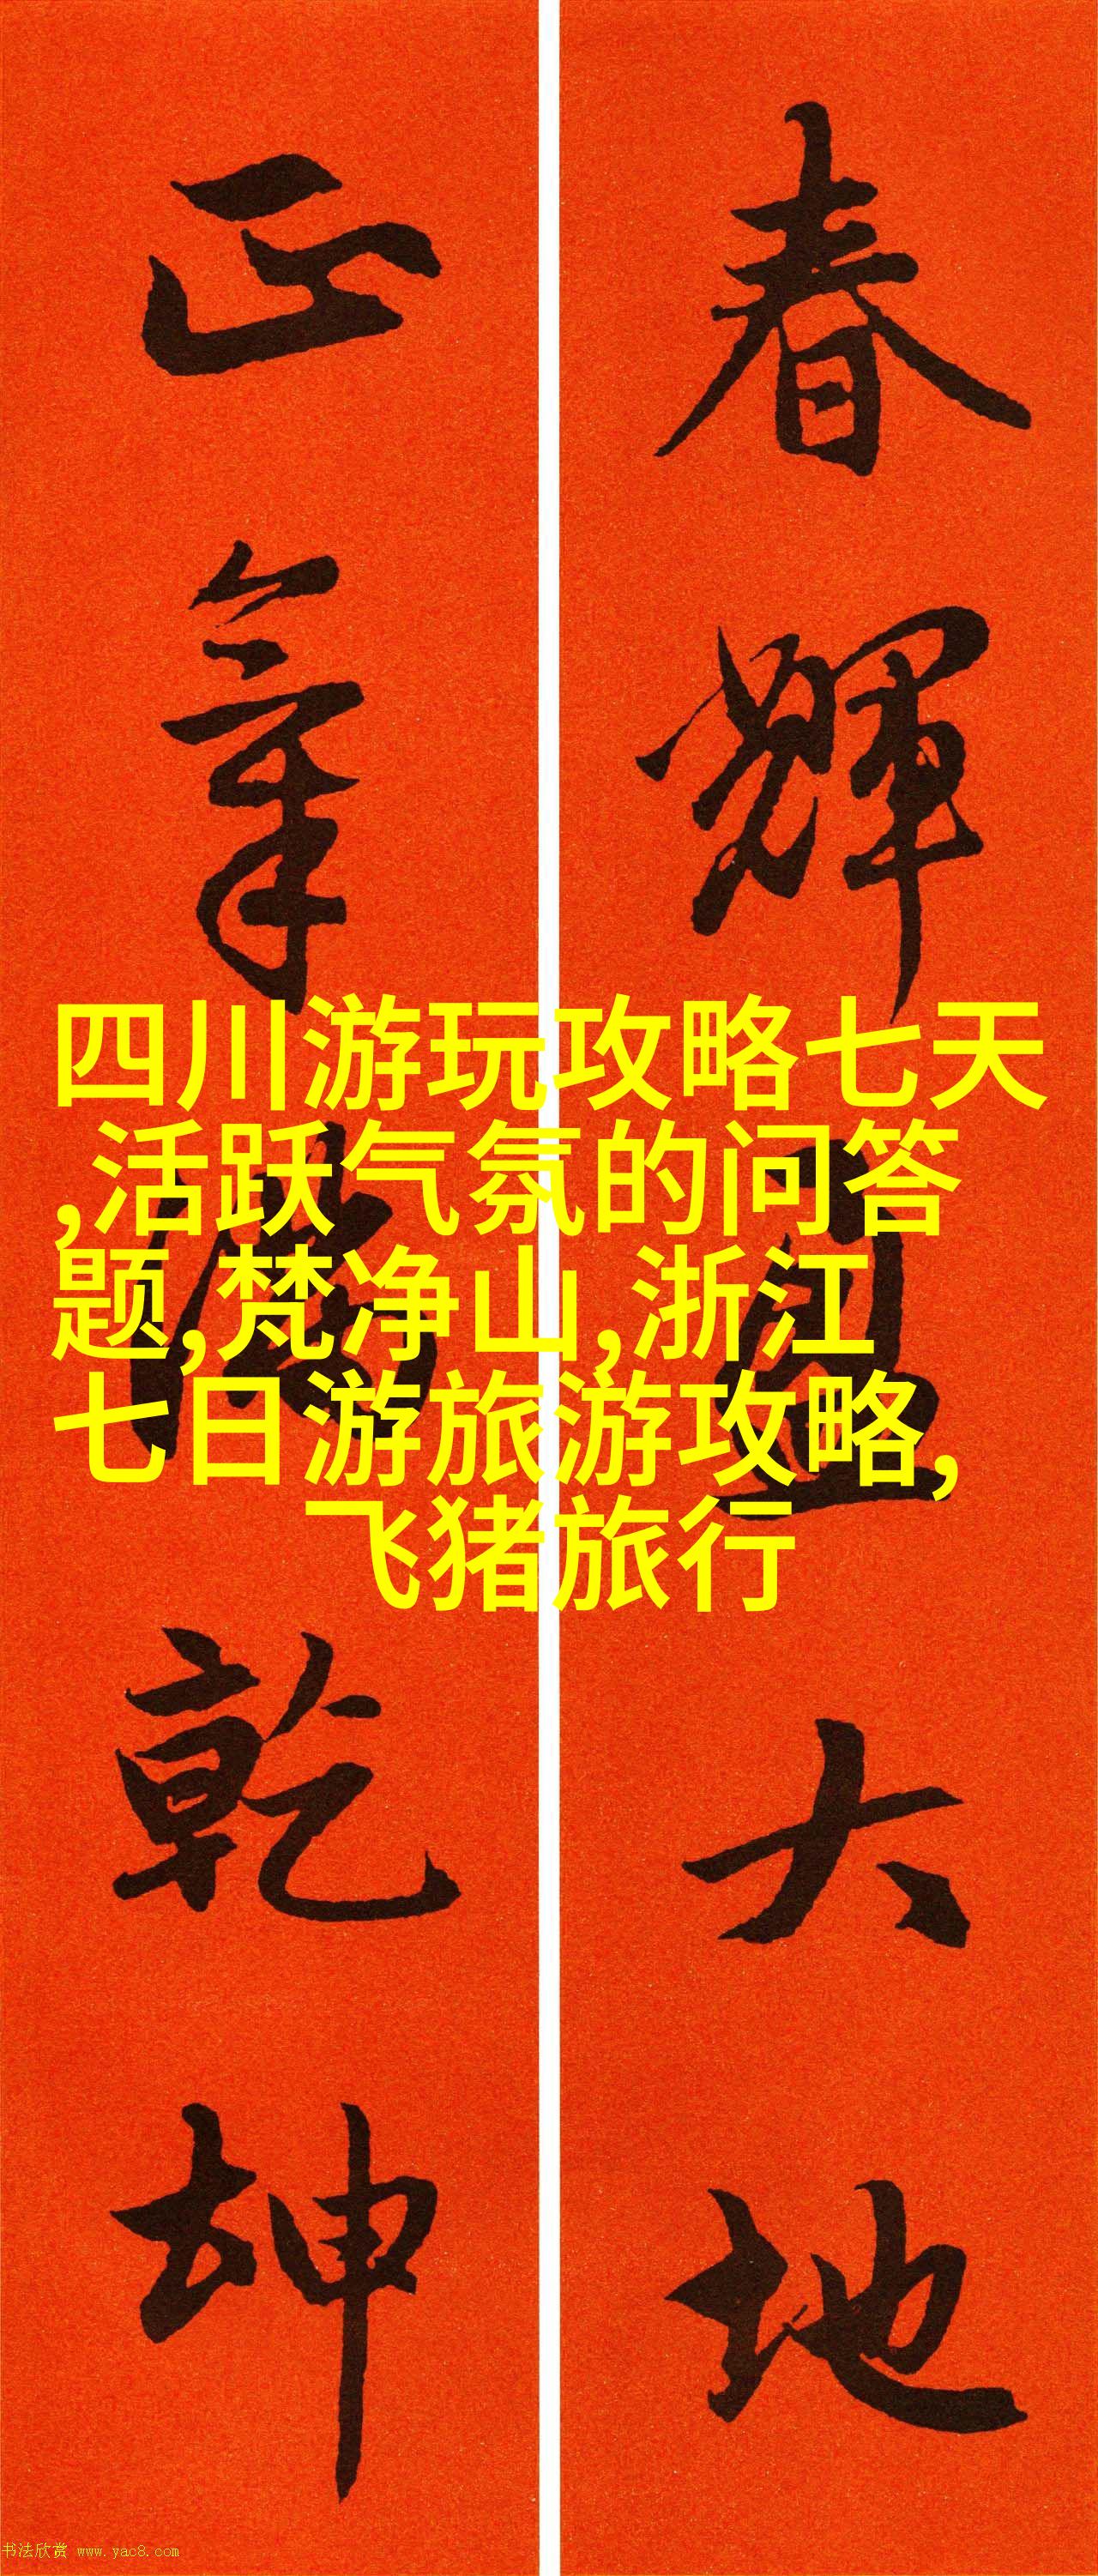 春輝大地
正氣滿乾坤
四川游玩攻略七天
,活跃气氛的问答
题,梵净山,浙江
七日游旅游攻略,
飞猪旅行
书法欣赏 www.yac8.com